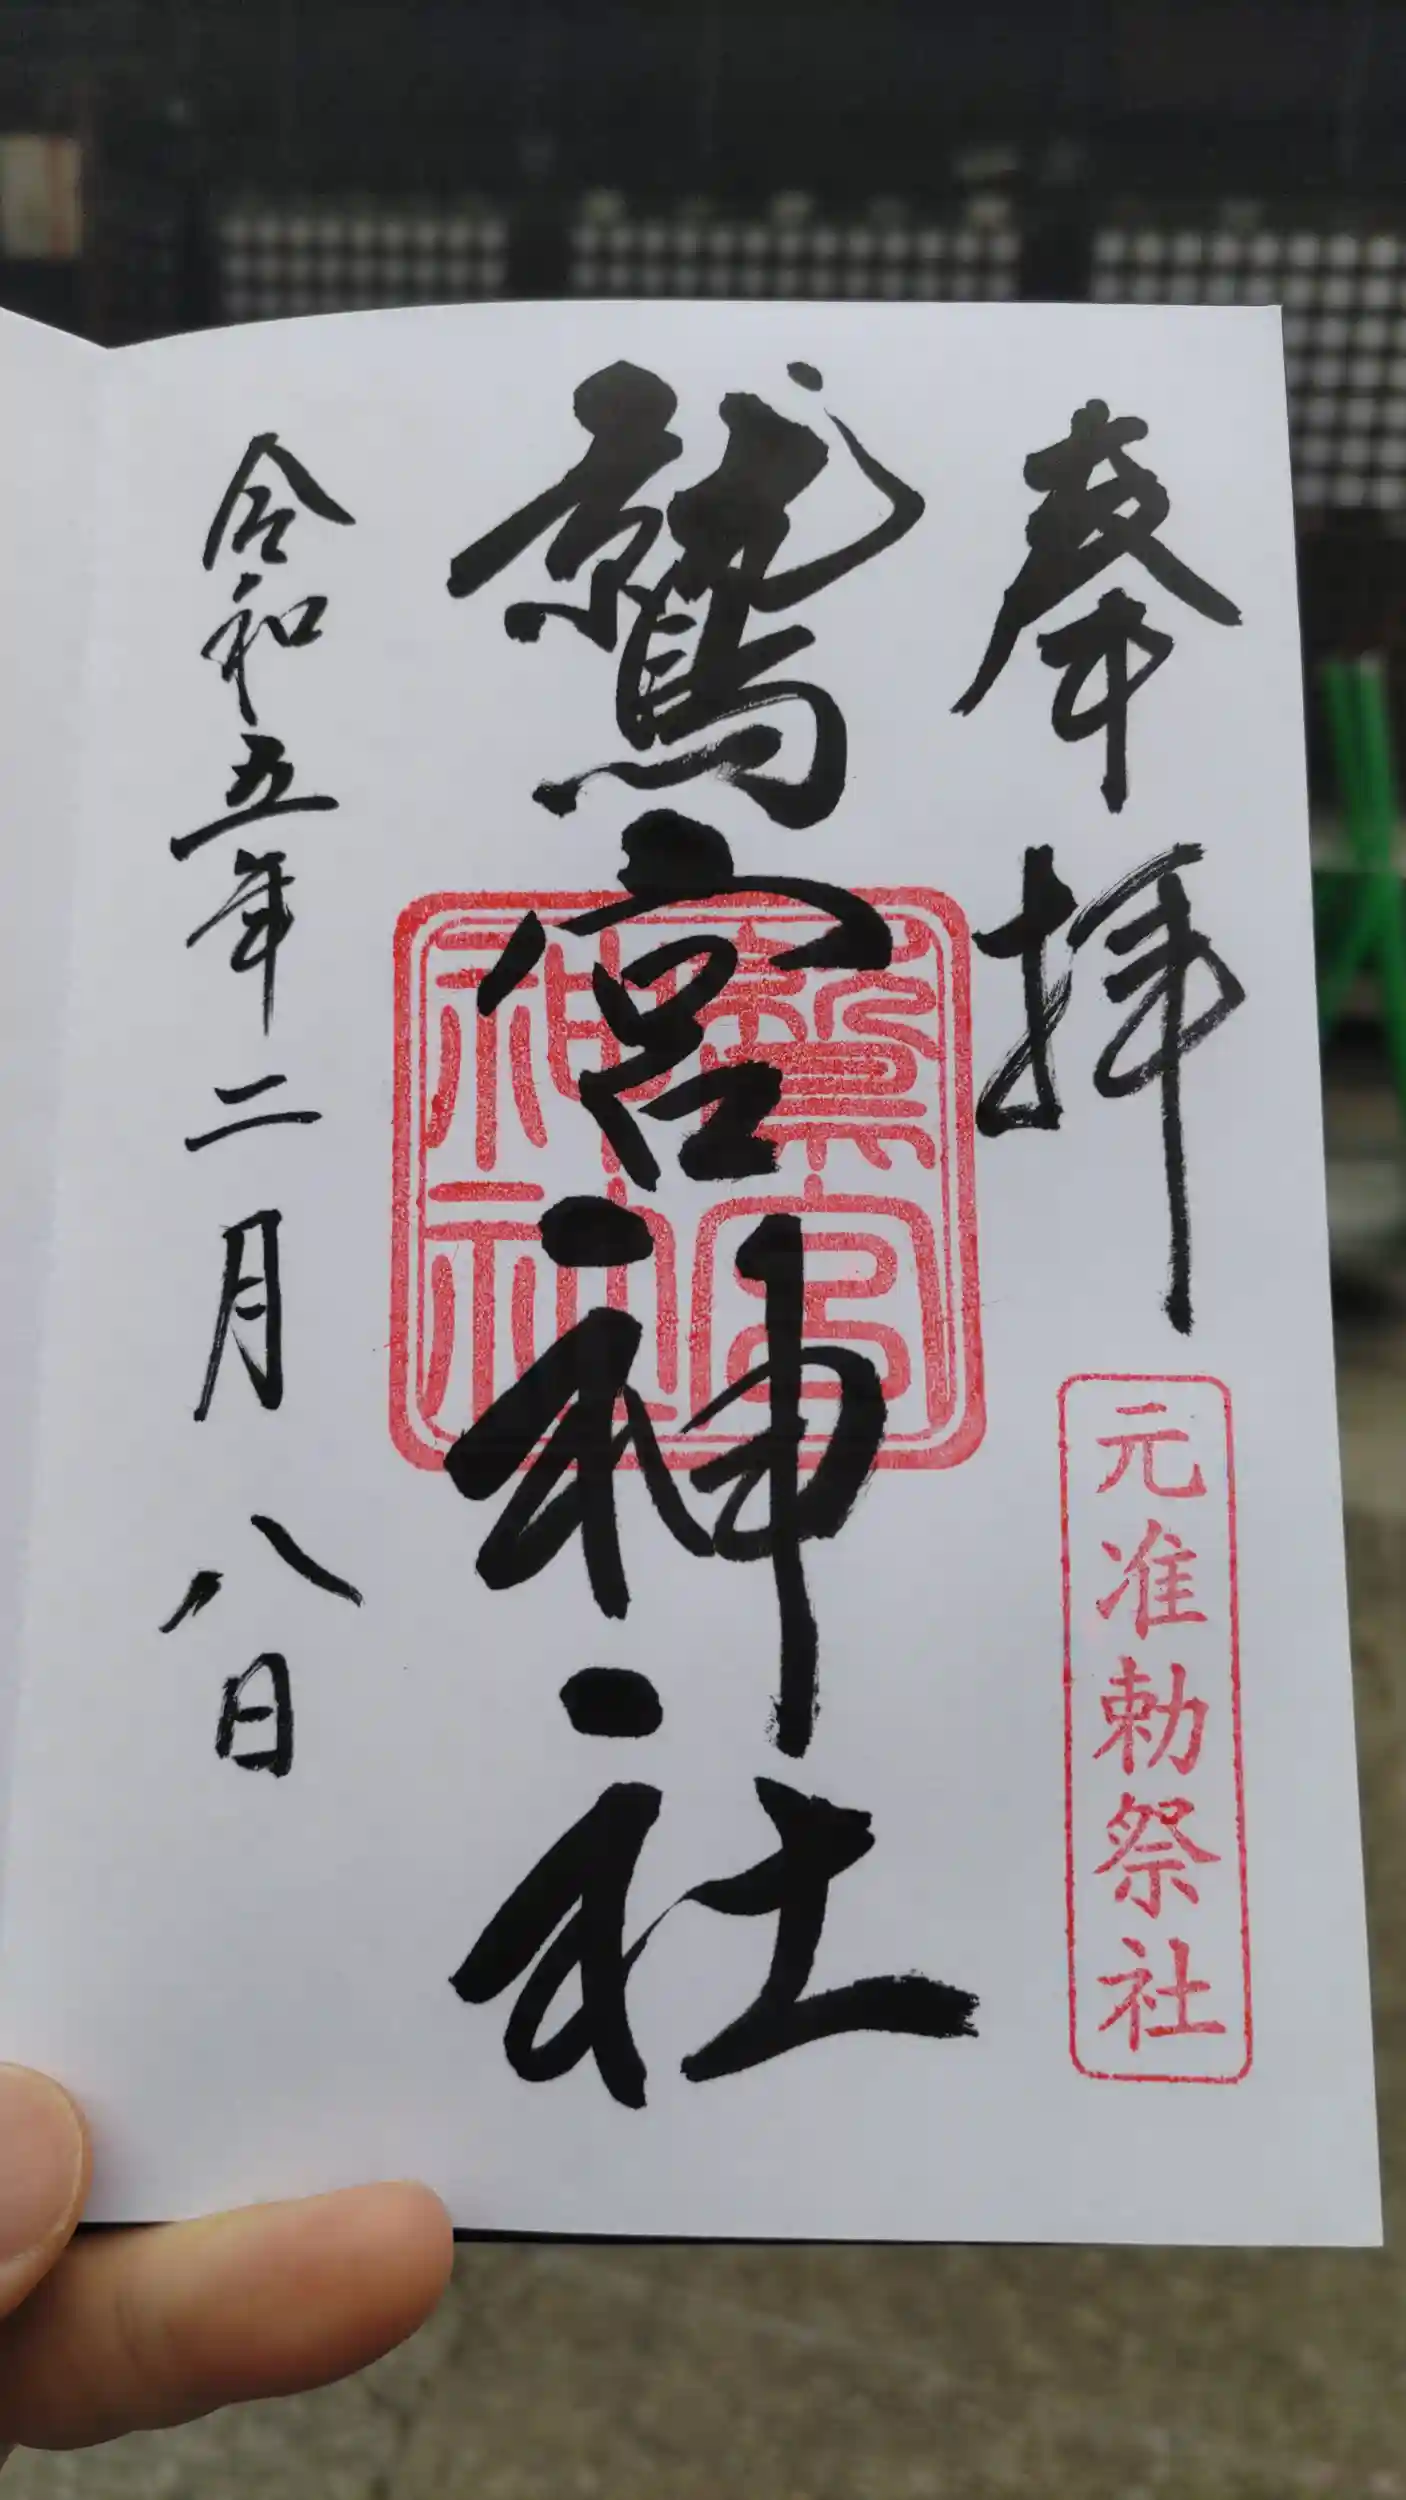 奉拝
元准勅祭社
鷲宮神社
鷲宮
神社
令和五年二月八日